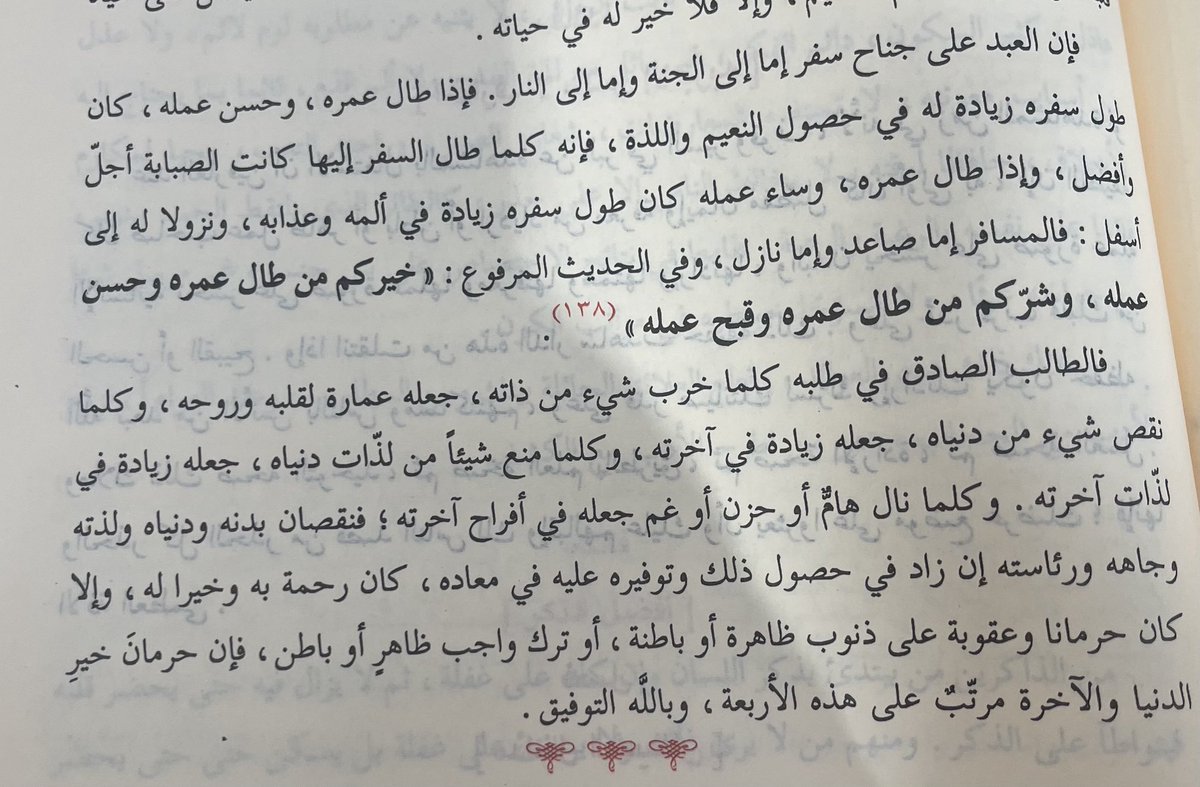 وإلا فلا خير له في حياته .
فإن العبد على جناح سفر إما إلى الجنة وإما إلى النار . فإذا طال عمره ، وحسن عمله ، كان
طول سفره زيادة له في حصول النعيم واللذة ، فإنه كلما طال السفر إليها كانت الصبابة أجلّ
وأفضل ، وإذا طال عمره ، وساء عمله كان طول سفره زيادة في ألمه وعذابه ، ونزولا له إلى
أسفل : فالمسافر إما صاعد وإما نازل ، وفي الحديث المرفوع : « خيركم من طال عمره وحسن
عمله ، وشرّكم من طال عمره وقبح عمله » (١٣٨) .
فالطالب الصادق في طلبه كلما خرب شيء من ذاته ، جعله عمارة لقلبه وروحه ، وكلما
نقص شيء من دنياه ، جعله زيادة في آخرته ، وكلما منع شيئاً من لذّات دنياه ، جعله زيادة في
لذّات آخرته . وكلما نال هامٌّ أو حزن أو غم جعله في أفراح آخرته ؛ فنقصان بدنه ودنياه ولذته
وجاهه ورئاسته إن زاد في حصول ذلك وتوفيره عليه في معاده ، كان رحمة به وخيرا له ، وإلا
كان حرمانا وعقوبة على ذنوب ظاهرة أو باطنة ، أو ترك واجب ظاهرٍ أو باطن ، فإن حرمانَ خيرِ
الدنيا والآخرة مرتّبٌ على هذه الأربعة ، وباللَّه التوفيق .